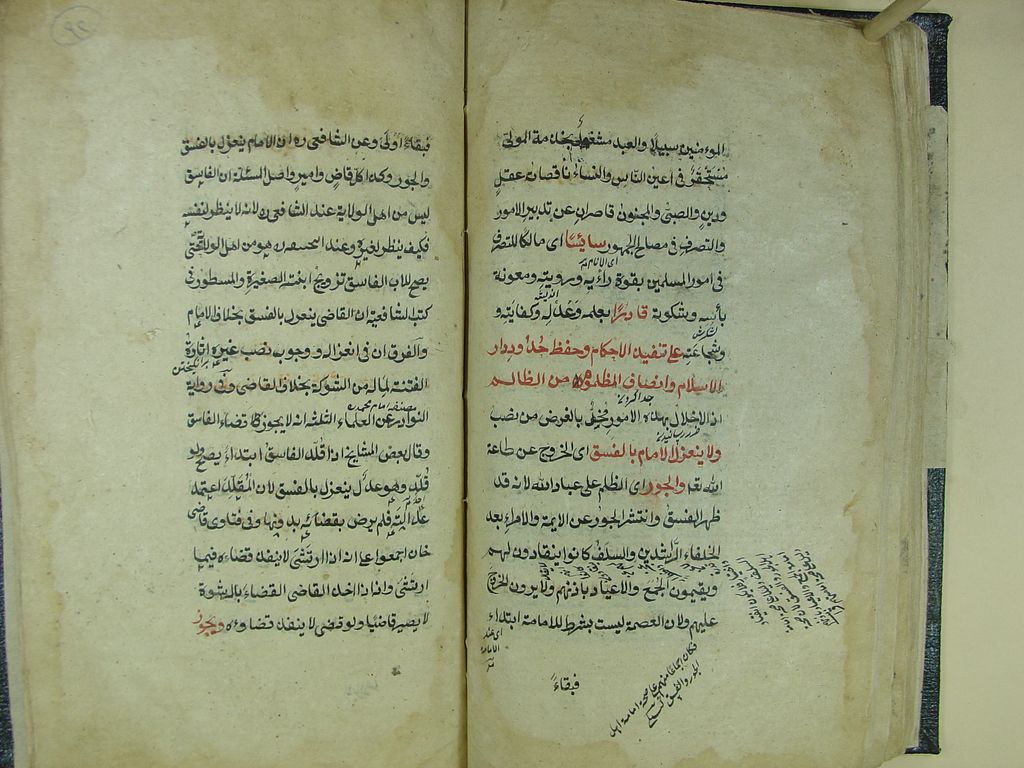 المؤمنين سبيلا والعبد مشغول بخدمة المولى
مستحقر فى اعين الناس والنساء ناقصات عقل
ودين والصبى والمجنون قاصران عن تدبير الامور
والتصرف فى مصالح الجمهور سائسا اى مالكا للتصرف
فى امور المسلمين بقوة رأيه ورويته ومعونة
بأسه وشوكته قادرا بعلمه وعدله وكفايته و
وشجاعته على تنفيذ الاحكام وحفظ حدود دار
الاسلام وانصاف المظلوم من الظالم
اذ الاخلال بهذه الامور مخل بالغرض من نصب
ولا ينعزل الامام بالفسق اى الخروج عن طاعة
الله تعا والجور اى الظلم على عباد الله لانه قد
ظهر الفسق وانتشر الجور عن الايمة والامراء بعد
الخلفاء الراشدين والسلف كانوا ينقادون لهم
ويقيمون الجمع والاعياد باذنهم ولا يرون الخروج
عليهم ولان العصمة ليست بشرط للامامة ابتداء
فبقاءً
فبقاءً اولى وعن الشافعى ره ان الامام ينعزل بالفسق
والجور وكذا كل قاض وامير واصل المسئلة ان الفاسق
ليس من اهل الولاية عند الشافعى ره لانه لا ينظر لنفسه
فكيف ينظر لغيره وعند ابى حنيفة ره هو من اهل الولاية حتى
يصح للاب الفاسق تزويج ابنته الصغيرة والمسطور فى
كتب الشافعية ان القاضى ينعزل بالفسق بخلاف الامام
والفرق ان فى انعزاله ووجوب نصب غيره اثارة
الفتنة لما له من الشوكة بخلاف القاضى وفى رواية
النوادر عن العلماء الثلثة انه لا يجوز قضاء الفاسق
وقال بعض المشايخ اذا قلد الفاسق ابتداء يصح ولو
قلد وهو عدل ينعزل بالفسق لان المقلد اعتمد
عدالته فلم يرض بقضائه بدونها وفى فتاوى قاضى
خان اجمعوا على انه اذا ارتشى لا ينفذ قضاءه فيما
ارتشى وانه اذا اخذ القاضى القضاء بالرشوة
لا يصير قاضيا ولو قضى لا ينفذ قضاوءه ويجوز